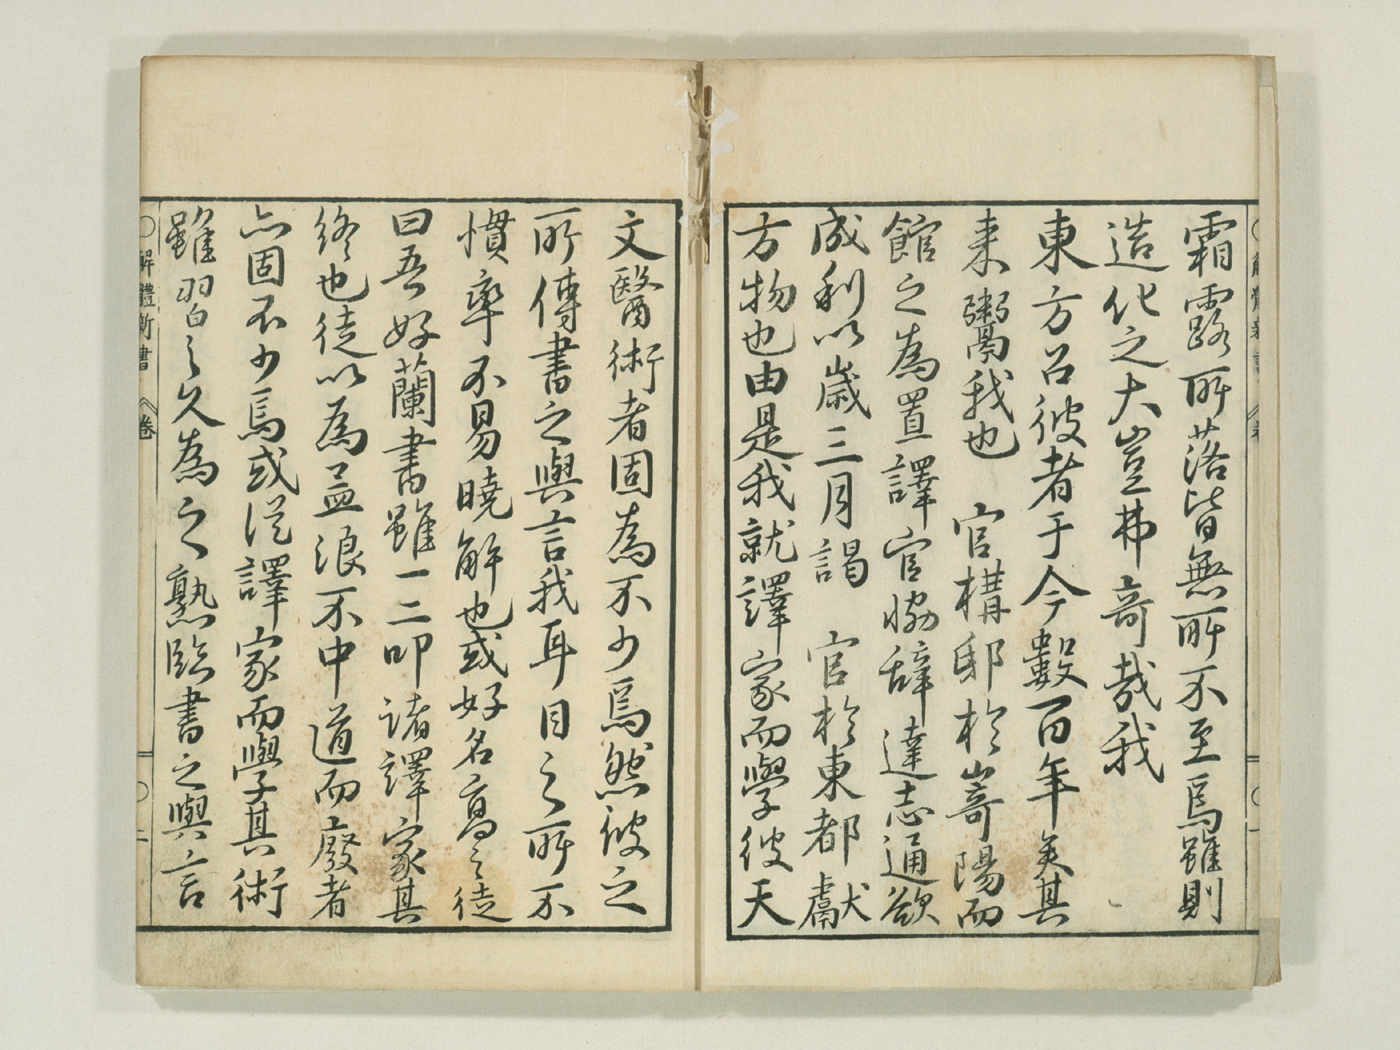 霜露所落皆無所不至焉雖則
造化之大豈弗奇哉我
東方召彼者于今數百年矣其
来鬻我也　官構邸於嵜陽而
館之為置譯官協辞達志通欲
成利以歲三月謁　官於東都獻
方物也由是我就譯家而學彼天
文醫術者固為不少焉然彼之
所傳書之與言我耳目之所不
慣率不易曉解也或好名高之徒
曰吾好蘭書雖一二叩諸譯家其
終也徒以為孟浪不中道而廢者
亦固不少焉或從譯家而學其術
雖習之久為之熟臨書之與言
解體新書　卷